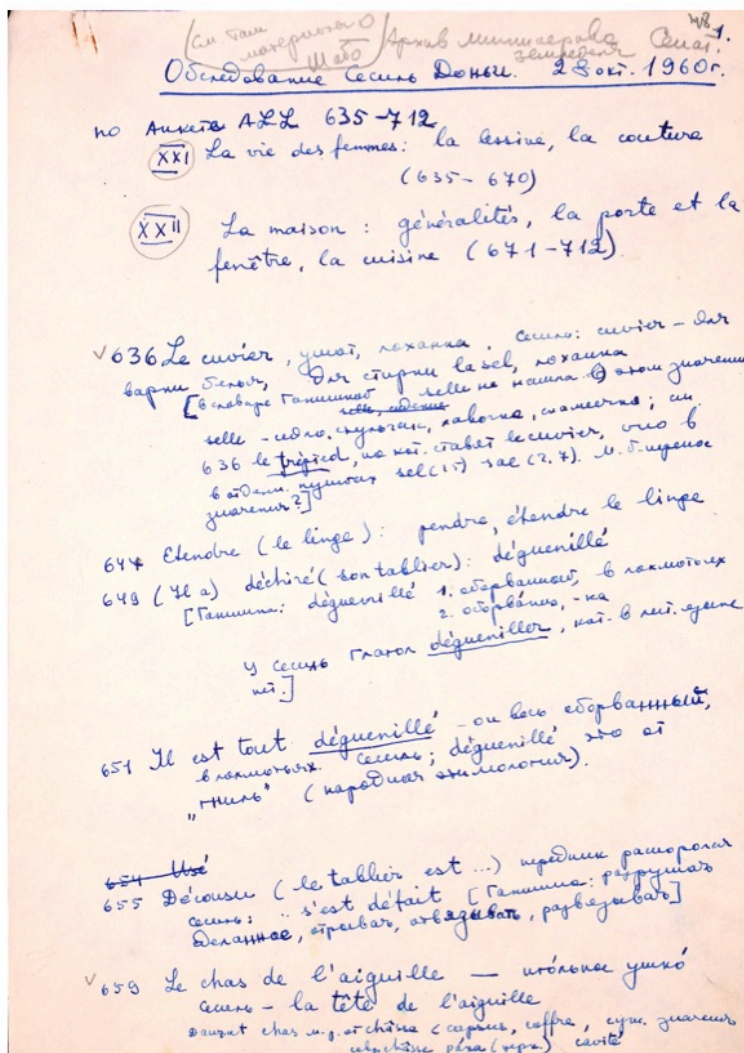 (см. там материалы о Шабо) Архив министерства земледел. Сенат. 1.
Обследование Сесиль Доньи. 28 окт. 1960 г.
по Анкете ALL 635-712
XXI La vie des femmes: la lessive, la couture
(635-670)
XXII La maison: généralités, la porte et la
fenêtre, la cuisine (671-712)
√ 636 Le cuvier, ушат, лоханка. Сесиль: cuvier - для
варки белья, для стирки la sel, лоханка
[в словаре Ганшиной selle не нашла в этом значении
selle - седло, стульчик, лавочка, скамеечка; см.
636 le trépied, на кот. ставят le cuvier, оно в
в отдельн. пунктах sel (15) sae (2.7). М.б. перенос
значения?]
647 Etendre (le linge): pendre, étendre le linge
649 (Il a) déchiré (son tablier): déguenillé
[Ганшина: déguenillé 1. оборванный, в лохмотьях
2. оборванец, -ка
У Сесиль глагол dégueniller, кот. в лит. языке
нет.]
651 Il est tout déguenillé - он весь оборванный,
в лохмотьях. Сесиль: déguenillé это от
"гниль" (народная этимология).
654 Usé
655 Décousu (le tablier est ...) передник распоролся
Сесиль: s'est défait [Ганшина: разрушать
сделанное, отрывать, отвязывать, развязывать]
√ 659 Le chas de l'aiguille — игольное ушко
Сесиль - la tête de l'aiguille
Dauzat chas м.р. от châsse (capsus, coffre, сущ. значения
cavité